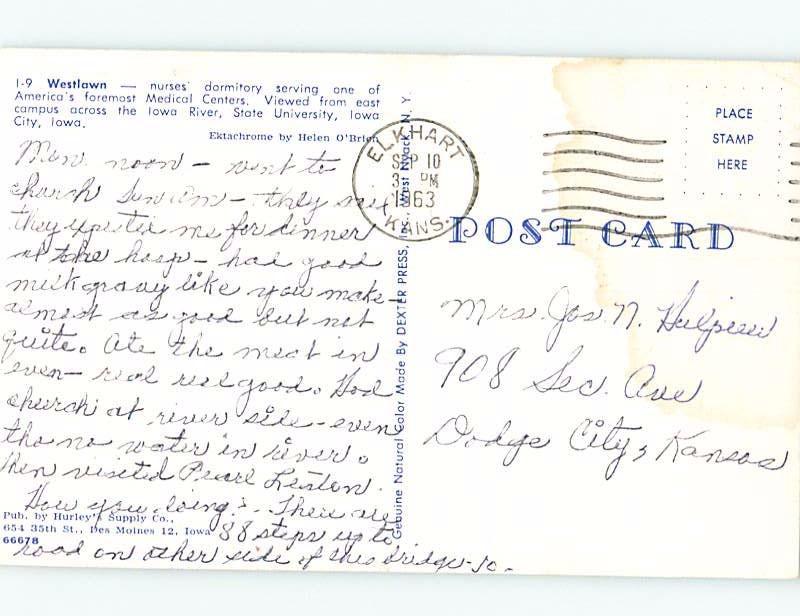 I-9 Westlawn — nurses' dormitory serving one of
America's foremost Medical Centers. Viewed from east
campus across the Iowa River, State University, Iowa
City, Iowa.
Ektachrome by Helen O'Brien
Mon. noon - went to
church Sun am - they
they me for dinner
at the hosp - had good
milk gravy like you make -
almost as good but not
quite. Ate the meat in
even - real real good. Had
church at river side - even
tho no water in river.
Then visited Pearl
How you doing? - There are
88 steps up to
road on other side of this bridge - Jo -
Pub. by Hurley's Supply Co.,
654 35th St., Des Moines 12, Iowa
66678
Genuine Natural Color Made By DEXTER PRESS, Inc., West Nyack, N. Y.
ELKHART
SEP 10
3 PM
1963
KANS.
PLACE
STAMP
HERE
POST CARD
Mrs. Jos N.
908 Sec. Ave
Dodge City, Kansas